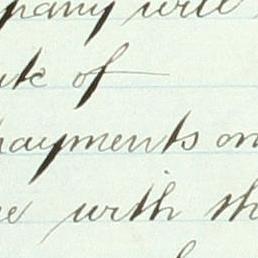 pany will
ute of
payments on
with th